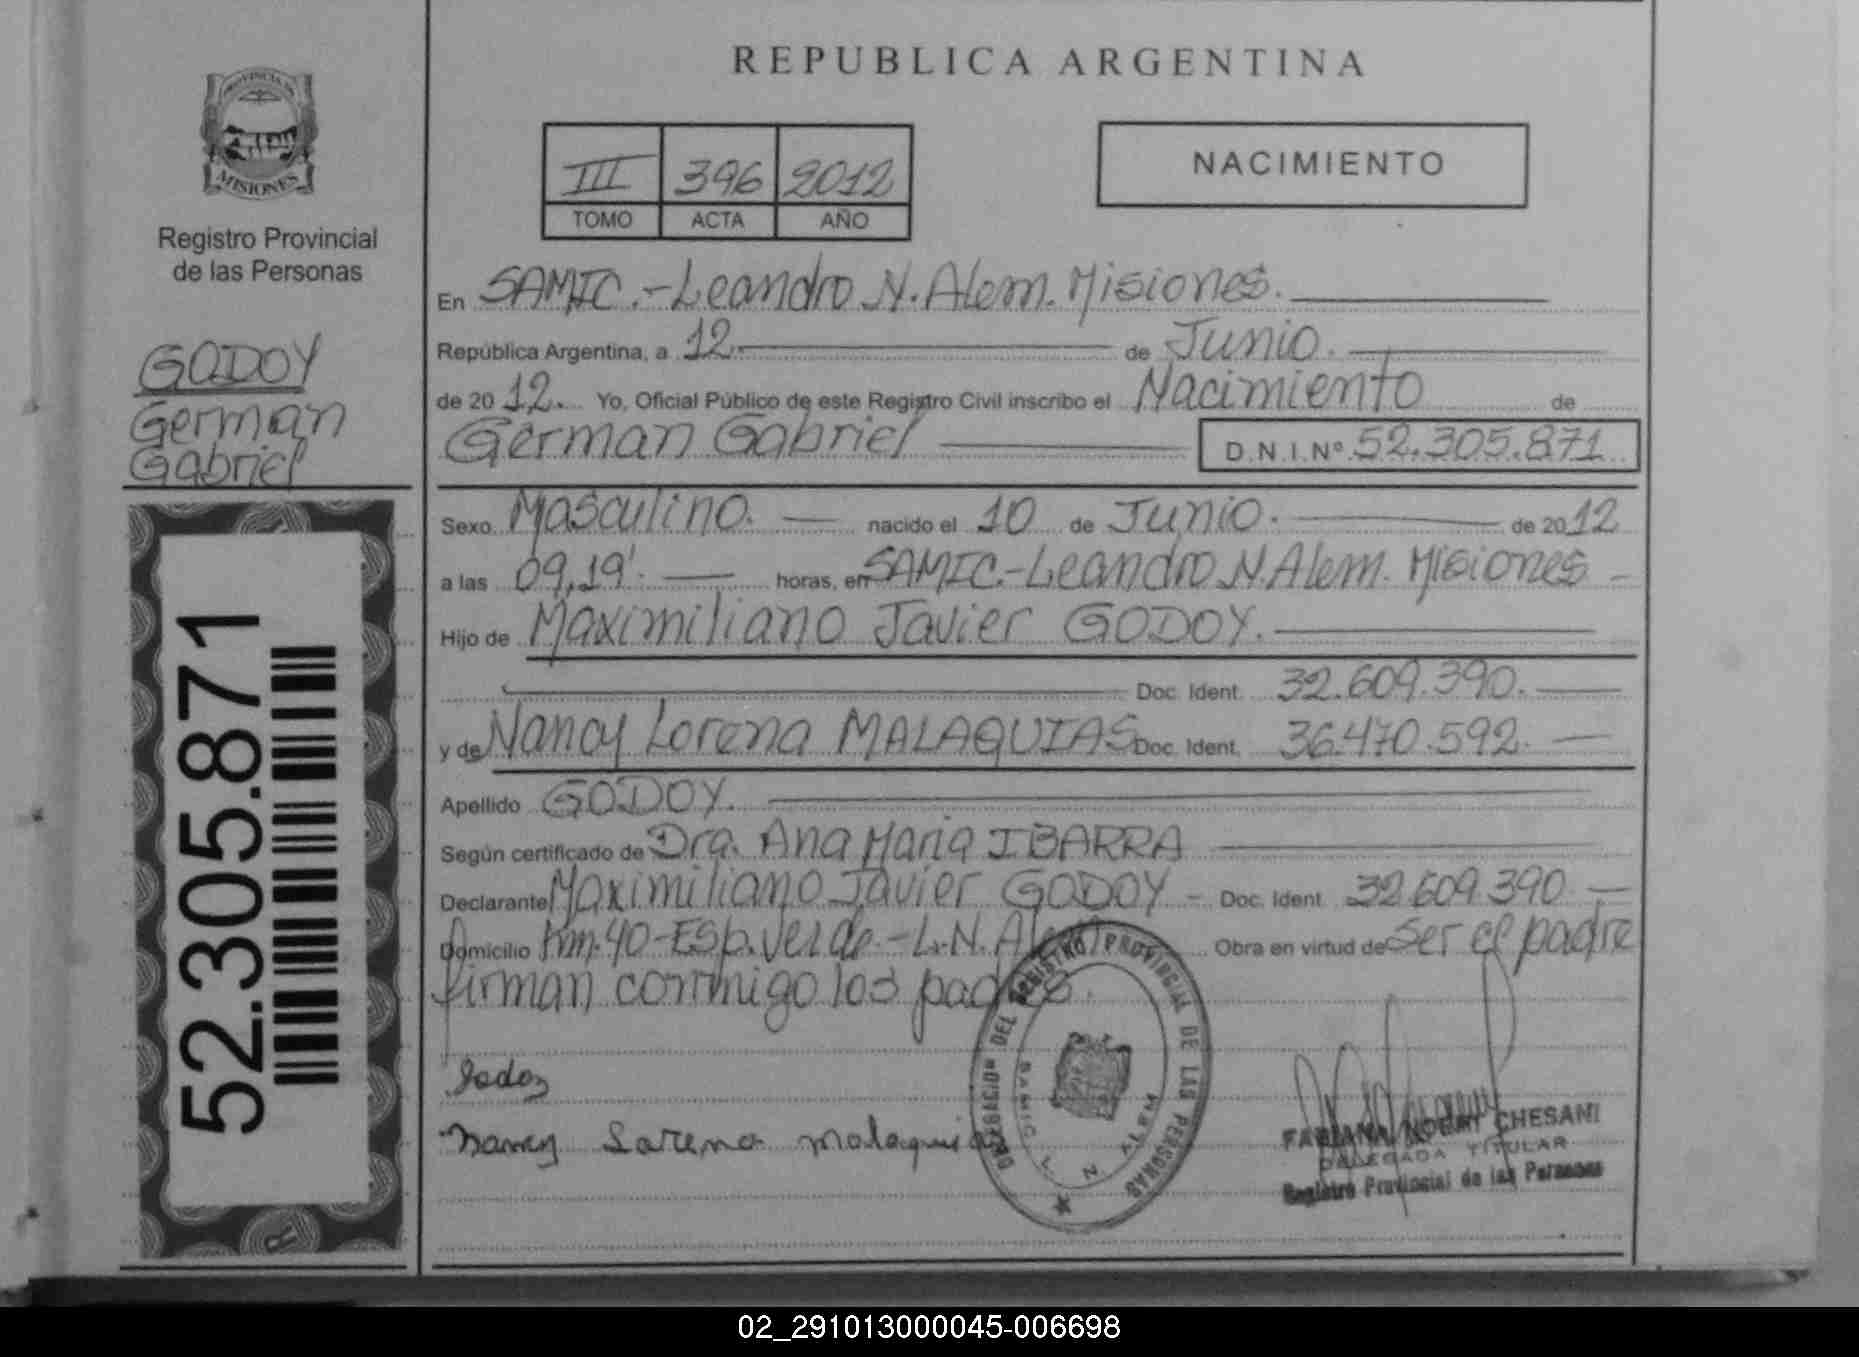 PROVINCIA DE
MISIONES
Registro Provincial
de las Personas
GODOY
German
Gabriel
52.305.871
REPUBLICA ARGENTINA
III 396 2012
TOMO ACTA AÑO
NACIMIENTO
En SAMIC.-Leandro N. Alem. Misiones.
República Argentina, a 12. de Junio.
de 2012. Yo, Oficial Público de este Registro Civil inscribo el Nacimiento de
German Gabriel D.N.I.Nº 52.305.871
Sexo Masculino. nacido el 10 de Junio. de 2012
a las 09,19'. horas, en SAMIC.-Leandro N. Alem. Misiones
Hijo de Maximiliano Javier GODOY.
Doc. Ident. 32.609.390.
y de Nancy Lorena MALAQUIAS Doc. Ident. 36.470.592.
Apellido GODOY.
Según certificado de Dra. Ana Maria IBARRA
Declarante Maximiliano Javier GODOY - Doc. Ident. 32.609.390
Domicilio Km.40-Esp.Verde.-L.N.Alem Obra en virtud de ser el padre
firman conmigo los padres.
Godoy
Nancy Lorena Malaquias
DELEGACION DEL REGISTRO PROVINCIAL DE LAS PERSONAS
SAMIC L. N. ALEM
FABIANA NOEMI CHESANI
DELEGADA TITULAR
Registro Provincial de las Personas
02_291013000045-006698